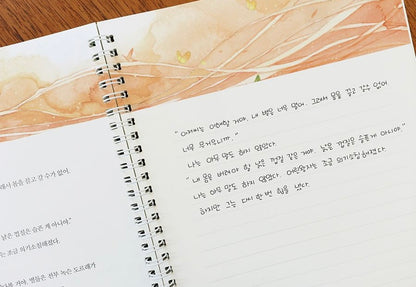 래서 몸을 끌고 갈 수가 없어.
낡은 껍질은 슬픈 게 아니야."
는 조금 의기소침해졌다.
거야. 별들은 전부 녹슨 도르래가
"아저씨는 이해할 거야. 내 별은 너무 멀어. 그래서 몸을 끌고 갈 수가 없어
너무 무거우니까.."
나는 아무 말도 하지 않았다.
"내 몸은 버려야 할 낡은 껍질 같은 거야. 낡은 껍질은 슬픈게 아니야."
나는 아무 말도 하지 않았다. 어린왕자는 조금 의기소침해졌다.
하지만 그는 다시 한 번 힘을 냈다.